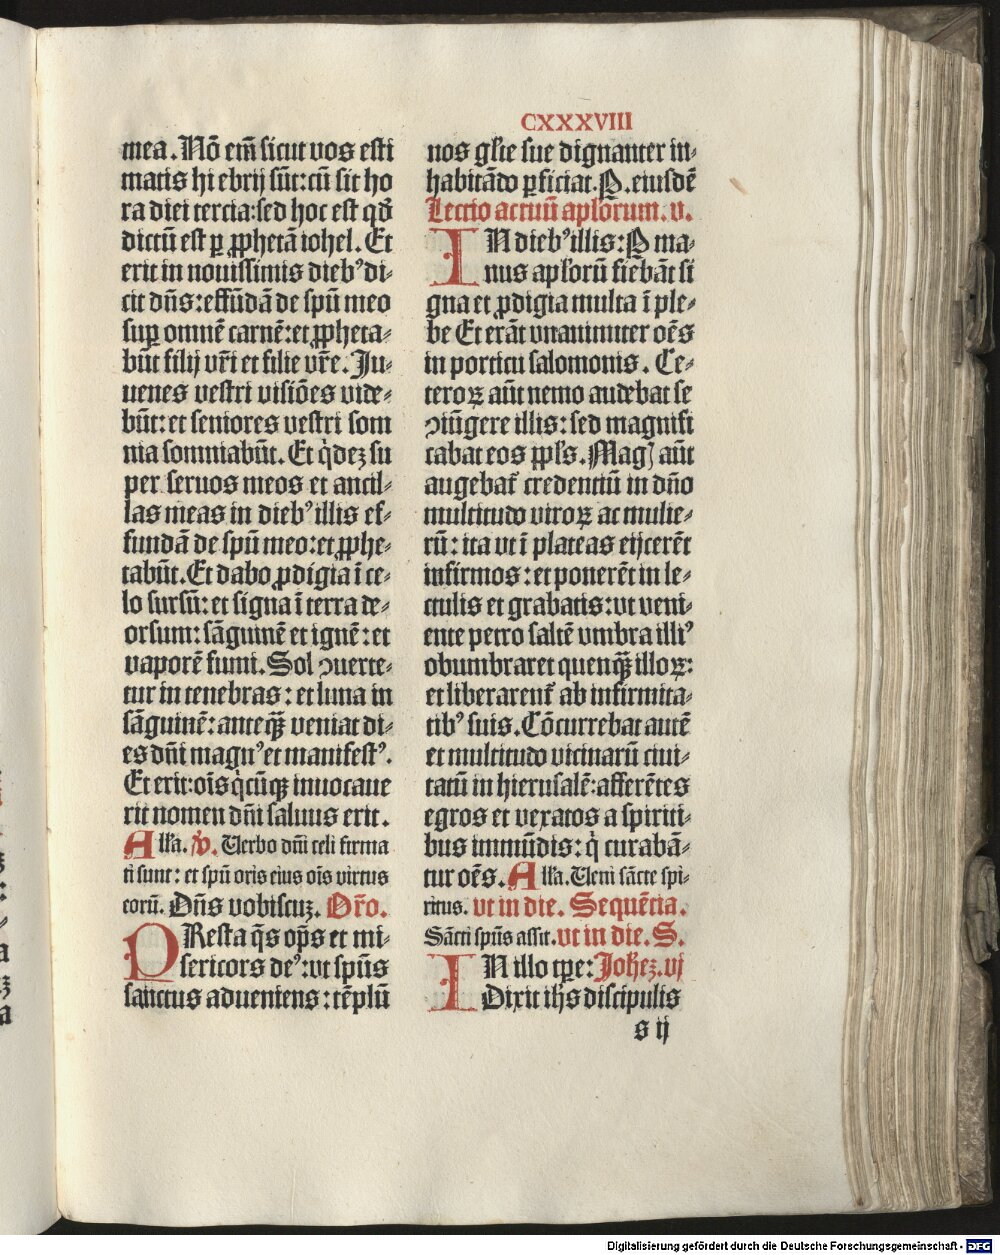 CXXXVIII
mea. Nō em̄ sicut vos esti
matis hi ebrij sūt: cū sit ho
ra diei tercia: sed hoc est qd̄
dictū est ꝑ ꝓphetā iohel. Et
erit in nouissimis dieb⁹ di⸗
cit dn̄s: effūdā de spū meo
suꝑ omnē carnē: et ꝓpheta⸗
būt filij vr̄i et filie vr̄e. Ju⸗
uenes vestri visiōes vide⸗
būt: et seniores vestri som
nia somniabūt. Et q̇dez su
per seruos meos et ancil⸗
las meas in dieb⁹ illis ef⸗
fundā de spū meo: et ꝓphe⸗
tabūt. Et dabo ꝓdigia ī ce⸗
lo sursū: et signa ī terra de⸗
orsum: sāguinē et ignē: et
vaporē fumi. Sol ↄuerte⸗
tur in tenebras: et luna in
sāguinē: anteq̄ꝫ veniat di⸗
es dn̄i magn⁹ et manifest⁹.
Et erit: oīs q̇cūqꝫ inuocaue
rit nomen dn̄i saluus erit.
Alľa. ꝟ. Verbo dn̄i celi firma
ti sunt: et spū oris eius oīs virtus
eorū. Dn̄s vobiscuꝫ. Or̄o.
PResta q̄s op̄s et mi⸗
sericors de⁹: vt spūs
sanctus adueniens: tēplū
nos gľie sue dignanter in⸗
habitādo ꝑficiat. P. eiusdē
Lectio actuū apľorum. v.
IN dieb⁹ illis: P ma⸗
nus apľorū fiebāt si
gna et ꝓdigia multa ī ple⸗
be Et erāt vnanimiter oēs
in porticu salomonis. Ce⸗
teroꝝ aūt nemo audebat se
ↄiūgere illis: sed magnifi
cabat eos ppľs. Magꝭ aūt
augebat᷑ credentiū in dn̄o
multitudo viroꝝ ac mulie⸗
rū: ita vt ī plateas eijcerēt
infirmos: et ponerēt in le⸗
ctulis et grabatis: vt veni⸗
ente petro saltē vmbra illi⁹
obumbraret quenq̄ꝫ illoꝝ:
et liberarent᷑ ab infirmita⸗
tib⁹ suis. Cōcurrebat autē
et multitudo vicinarū ciui⸗
tatū in hierusalē: afferētes
egros et vexatos a spiriti⸗
bus immūdis: q̇ curabā⸗
tur oēs. Alľa. Veni sācte spi⸗
ritus. vt in die. Sequētia.
Sācti spūs assit. vt in die. S.
IN illo tꝑe: Joħez. vj
Dixit ih̄s discipulis
s ij
Digitalisierung gefördert durch die Deutsche Forschungsgemeinschaft - DFG